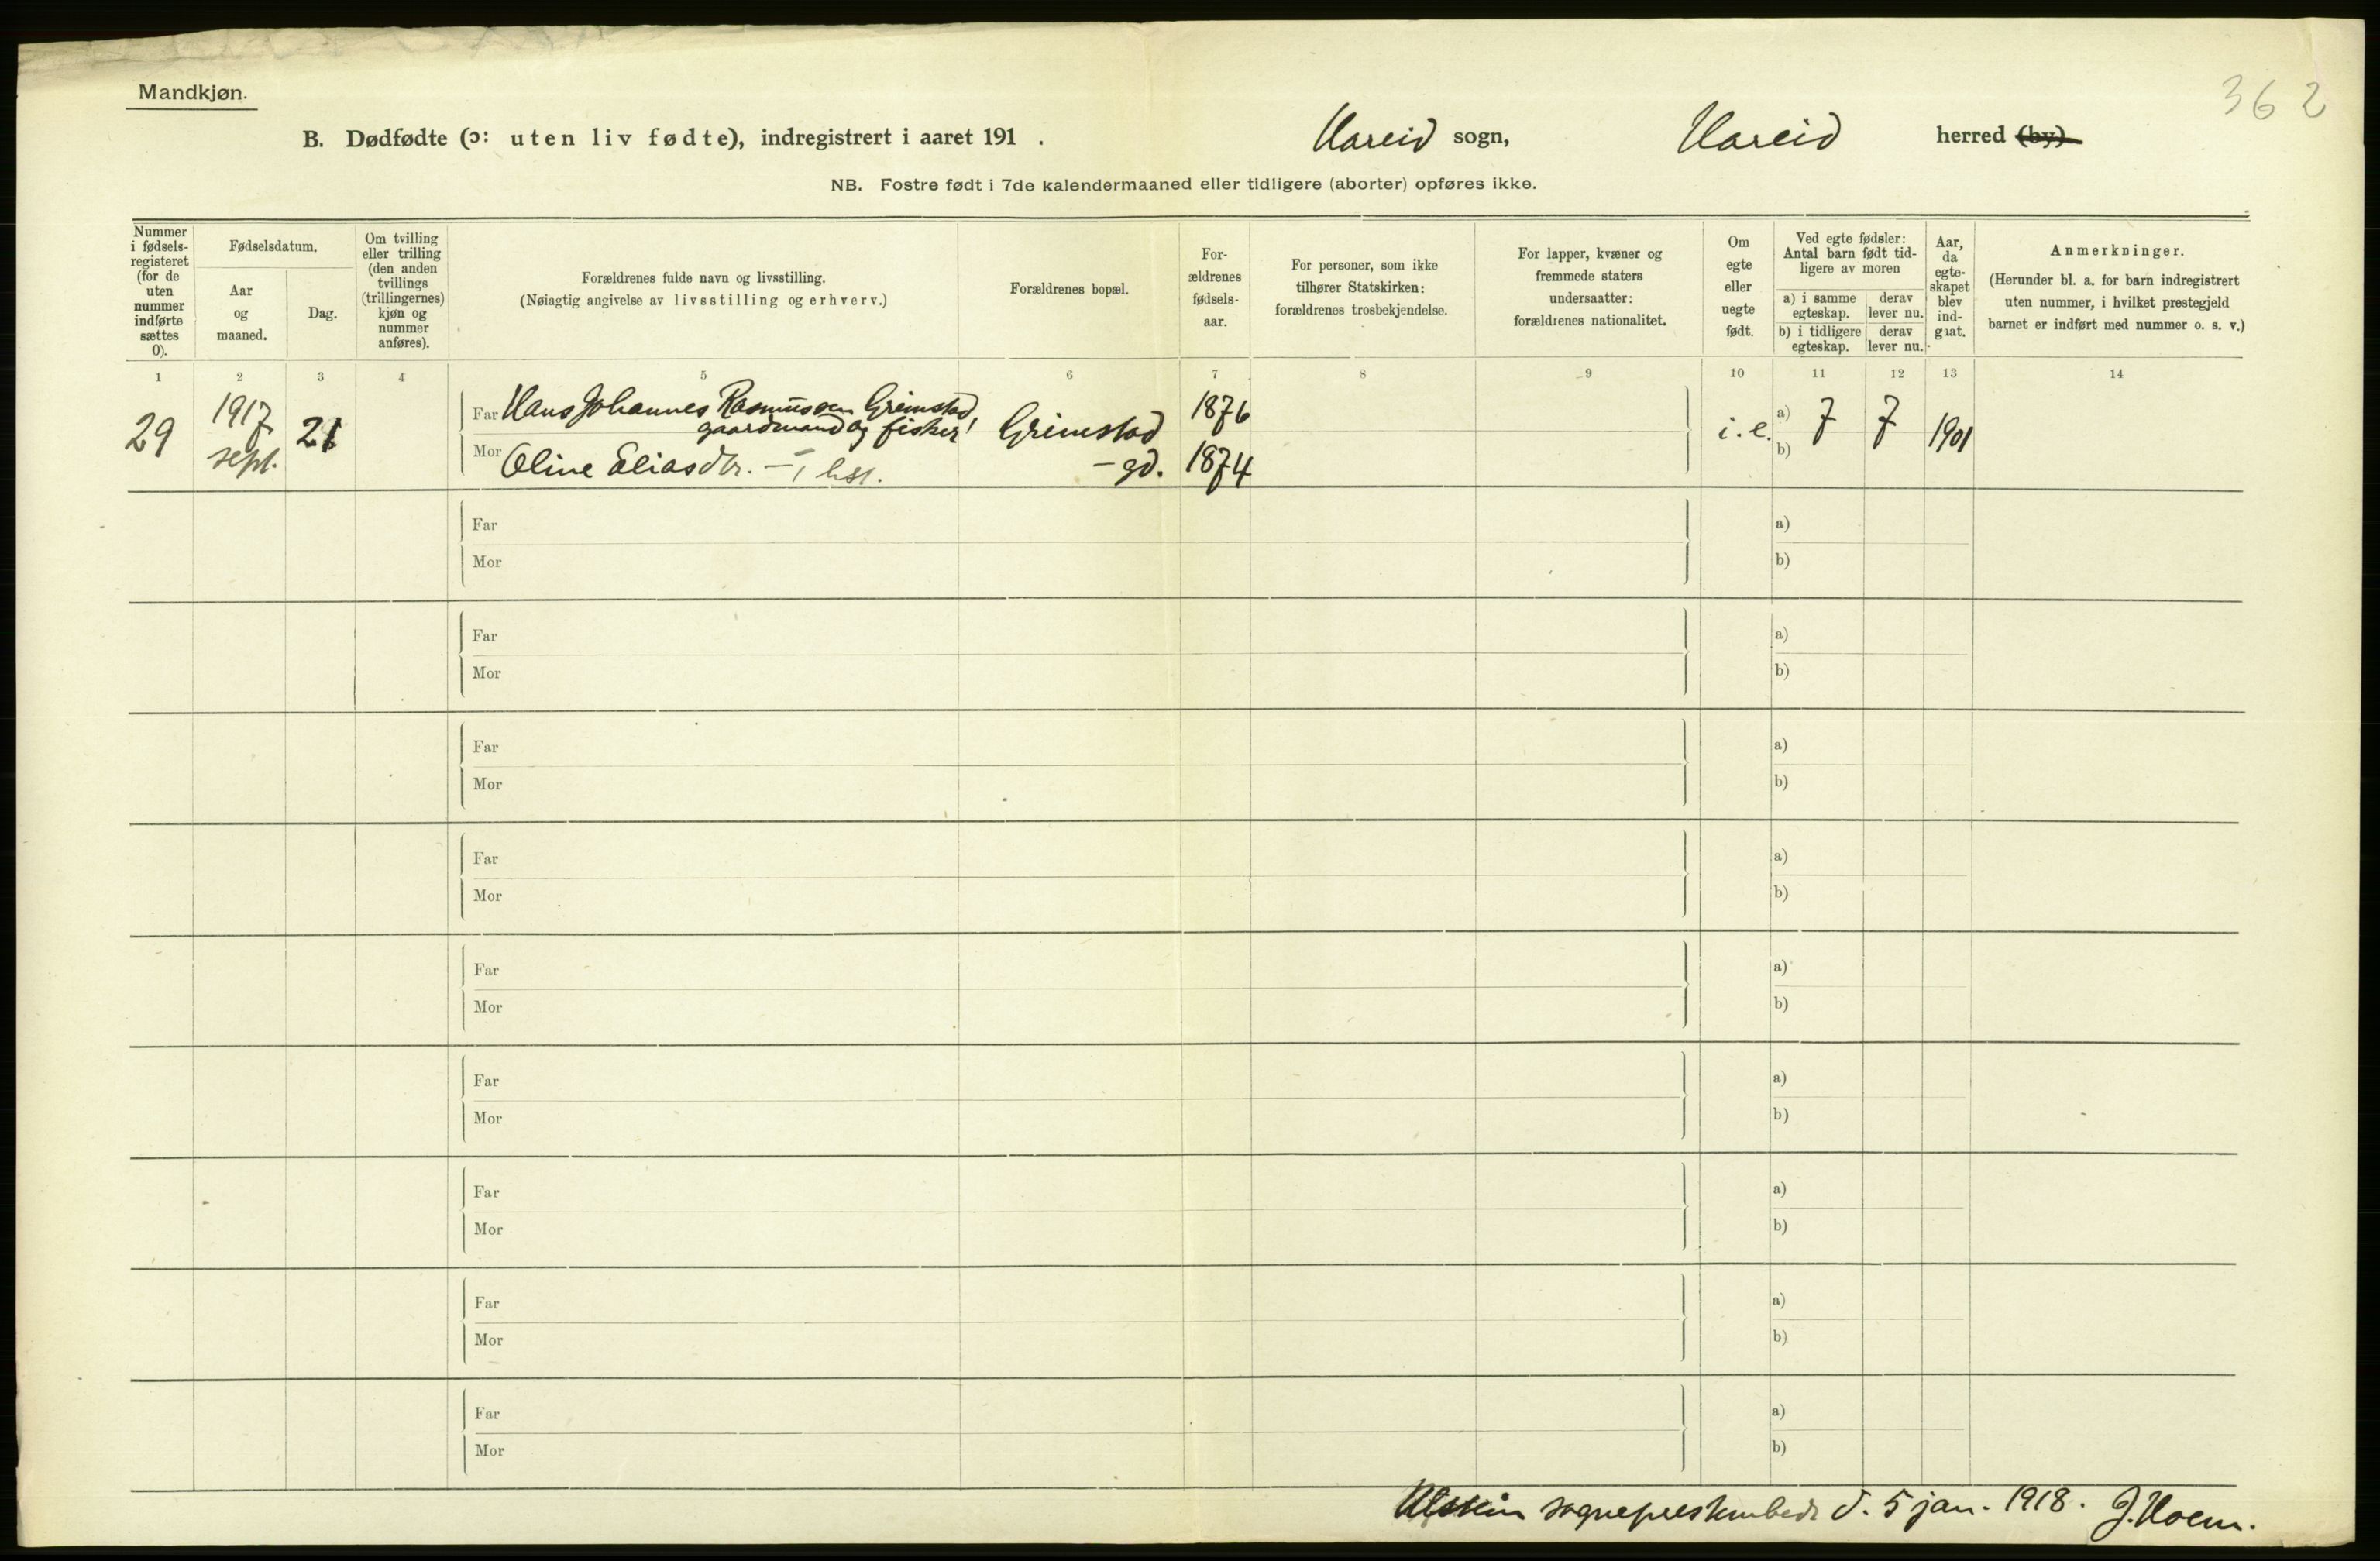 362
Mandkjøn.
B. Dødfødte (ɔ: uten liv fødte), indregistrert i aaret 191 . Hareid sogn, Hareid herred (by)
NB. Fostre født i 7de kalendermaaned eller tidligere (aborter) opføres ikke.
Nummer
i fødsels-
registeret
(for de
uten
nummer
indførte
sættes
0).
Fødselsdatum.
Aar
og
maaned.
Dag.
Om tvilling
eller trilling
(den anden
tvillings
(trillingernes)
kjøn og
nummer
anføres).
Forældrenes fulde navn og livsstilling.
(Nøiagtig angivelse av livsstilling og erhverv.)
Forældrenes bopæl.
For-
ældrenes
fødsels-
aar.
For personer, som ikke
tilhører Statskirken:
forældrenes trosbekjendelse.
For lapper, kvæner og
fremmede staters
undersaatter:
forældrenes nationalitet.
Om
egte
eller
uegte
født.
Ved egte fødsler:
Antal barn født tid-
ligere av moren
a) i samme
egteskap.
derav
lever nu.
b) i tidligere
egteskap.
derav
lever nu.
Aar,
da
egte-
skapet
blev
ind-
gaat.
Anmerkninger.
(Herunder bl. a. for barn indregistrert
uten nummer, i hvilket prestegjeld
barnet er indført med nummer o. s. v.)
1 2 3 4 5 6 7 8 9 10 11 12 13 14
29 1917 sept. 21
Far Hans Johannes Rasmussen Grimstad,
gaardmand og fisker Grimstad 1876
Mor Oline Eliasdtr. — — gd. 1874
i.e. a) 7 7 1901
b)
Far a)
Mor b)
Far a)
Mor b)
Far a)
Mor b)
Far a)
Mor b)
Far a)
Mor b)
Far a)
Mor b)
Far a)
Mor b)
Far a)
Mor b)
Far a)
Mor b)
sogneprestembede d. 5 jan. 1918. J. Hoem.